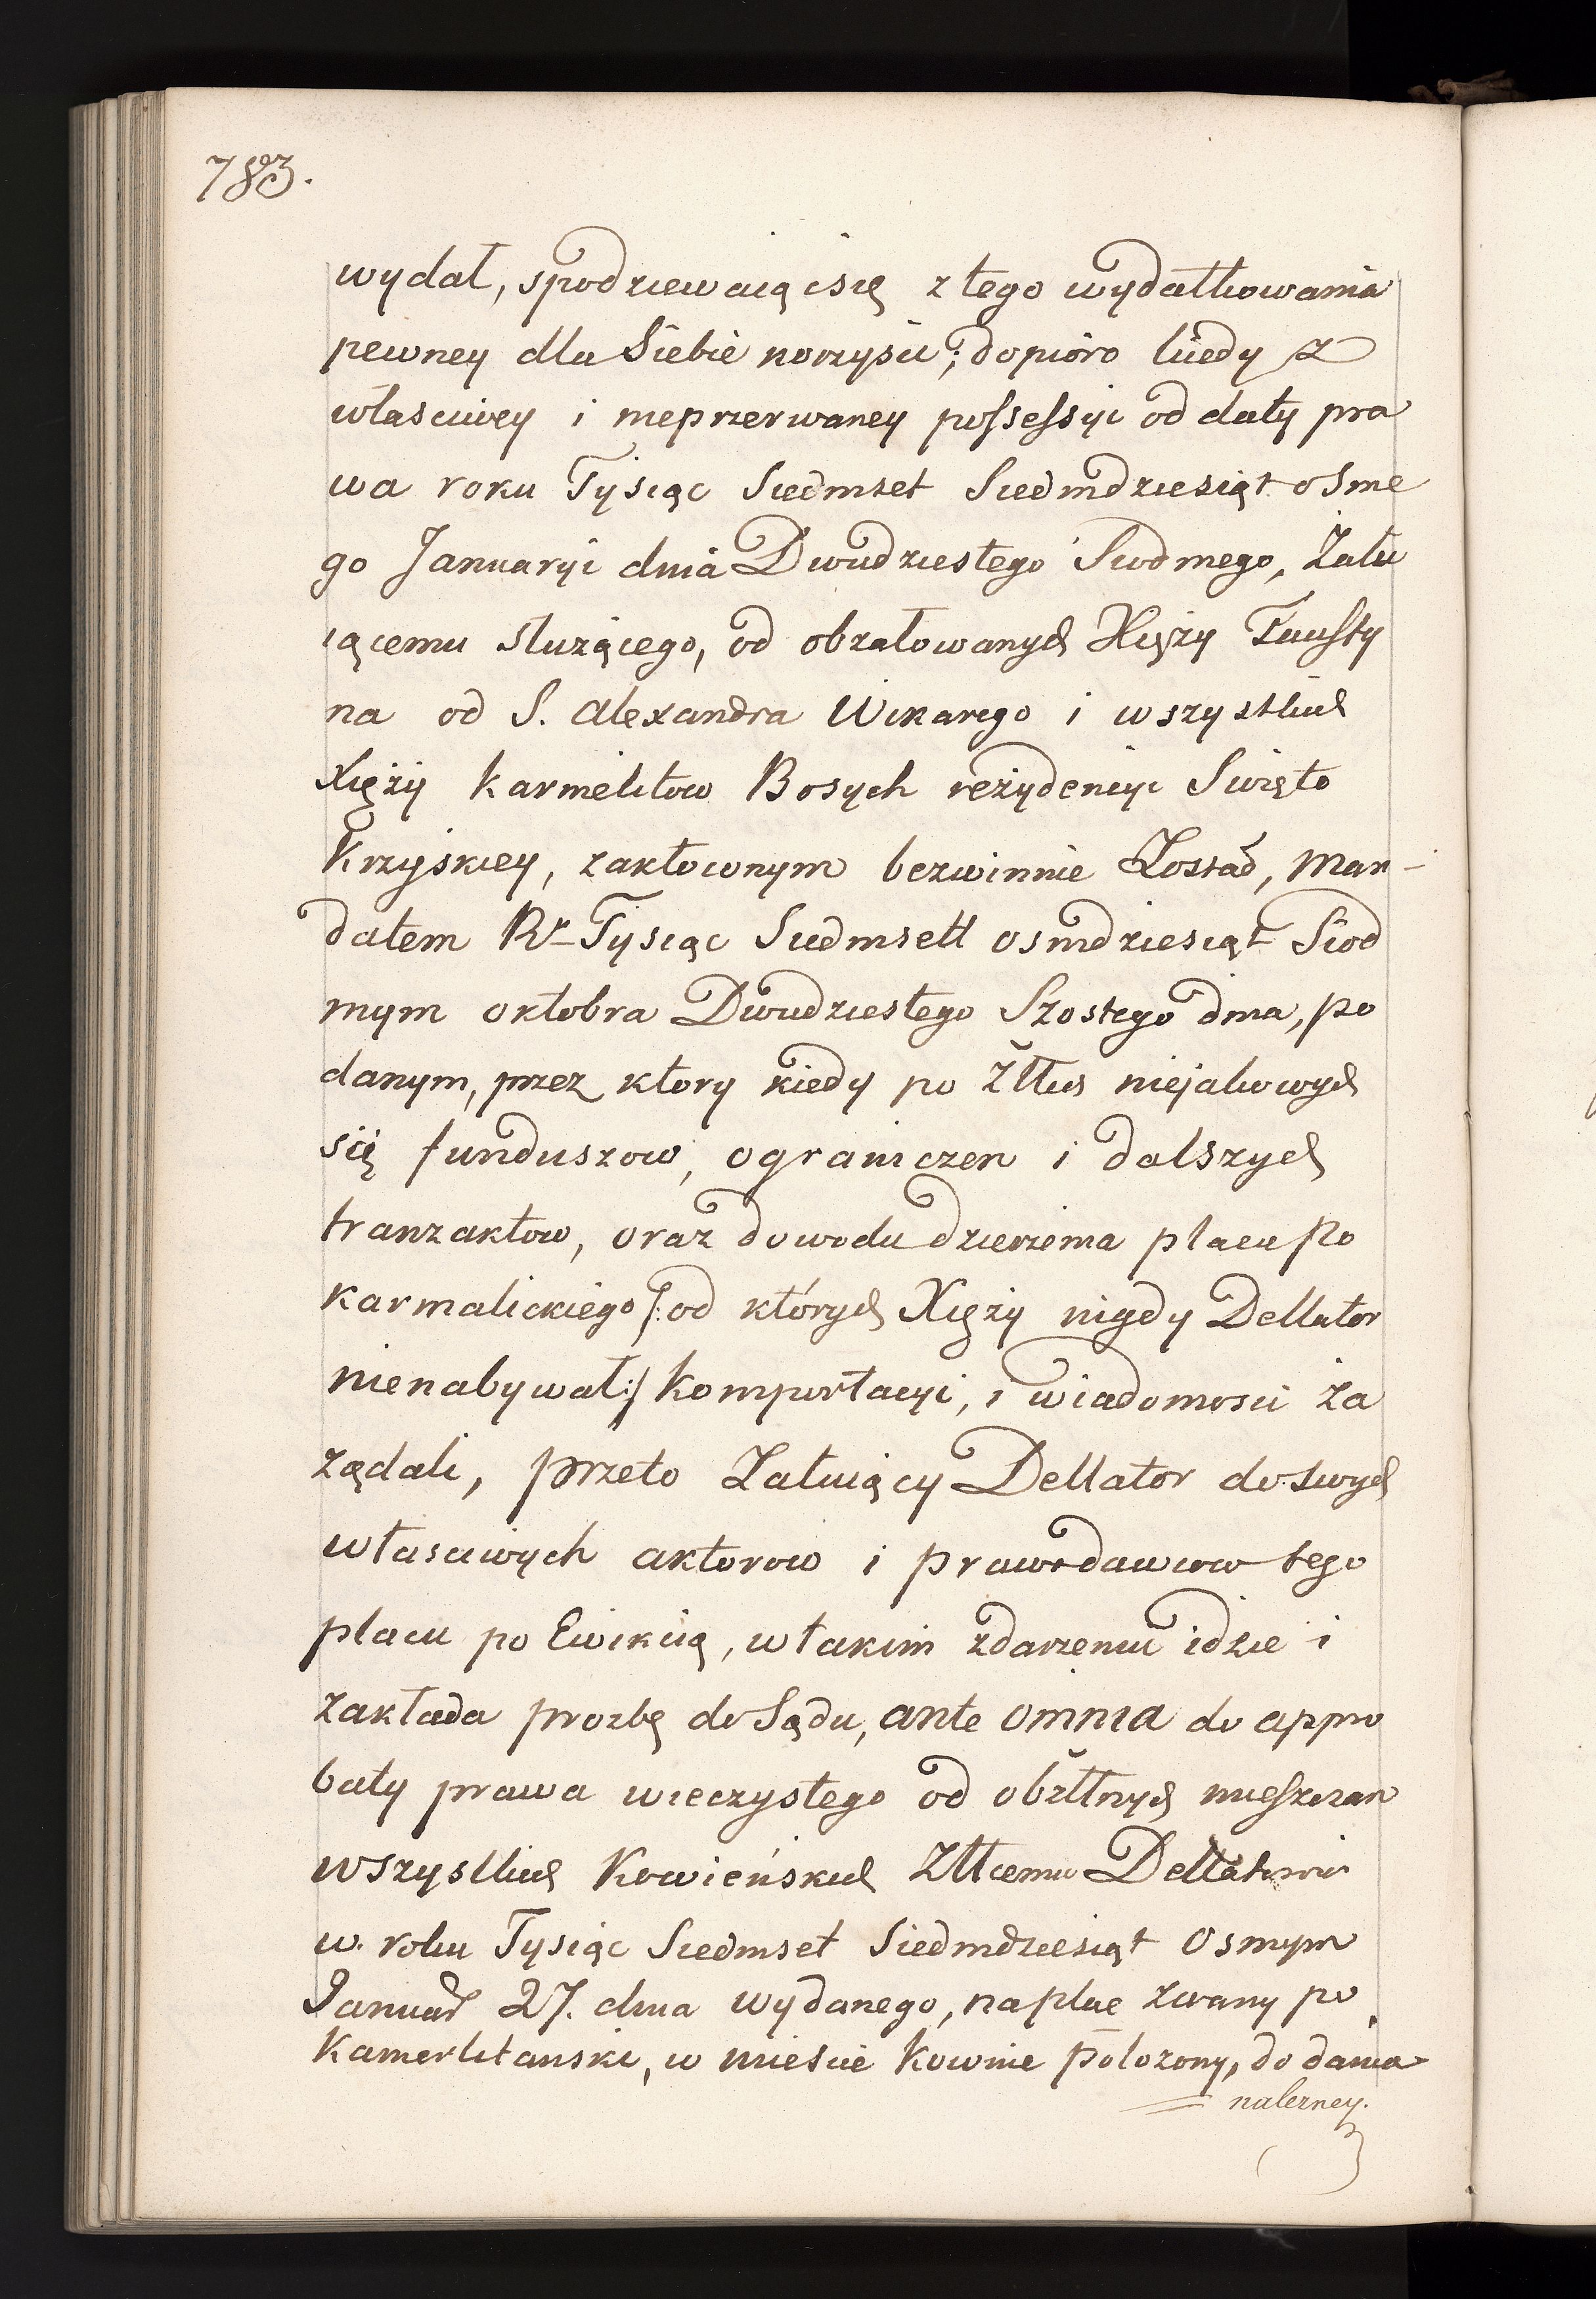 783.
wydał, spodziewaiąc się z tego wydatkowania
pewney dla Siebie korzyści; dopioro kiedy z
własciwey i nieprzerwaney possessyi od daty pra
wa roku Tysiąc Siedmset Siedmdziesiąt osme
go Januaryi dnia Dwudziestego Siodmego, Żału
iącemu służącego, od obżałowanych Xięży Fausty
na od S. Alexandra Wikarego i wszystkich
Xięży Karmelitow Bosych rezydencyi Święto
Krzyskiey, zakłoconym bezwinnie został, Man-
datem Rr Tysiąc Siedmsett osmdziesiąt Siod
mym oktobra Dwudziestego Szostego dnia, po
danym, przez ktory kiedy po Żłłu niejakowych
się funduszow, ograniczen i dalszych
tranzaktow, oraz dowodu dzierżenia placu Po
karmalickiego /: od których Xięży nigdy Dellator
nienabywał :/ komportacyi, i wiadomosci za
żądali, przeto Załuiący Dellator do swych
własciwych aktorow i prawodawcow tego
placu po Ewikcią, w takim zdarzeniu idzie i
zakłada prozbę do Sądu, ante omnia do appro
baty prawa wieczystego od obżłłnych mieszczan
wszystkich Kowieńskich Żłłcemu Dellatorowi
w roku Tysiąc Siedmset Siedmdziesiąt Osmym
Januar 27. dnia wydanego, na plac zwany po
Kamerlitanski, w miescie Kownie położony, do dania
= należney.